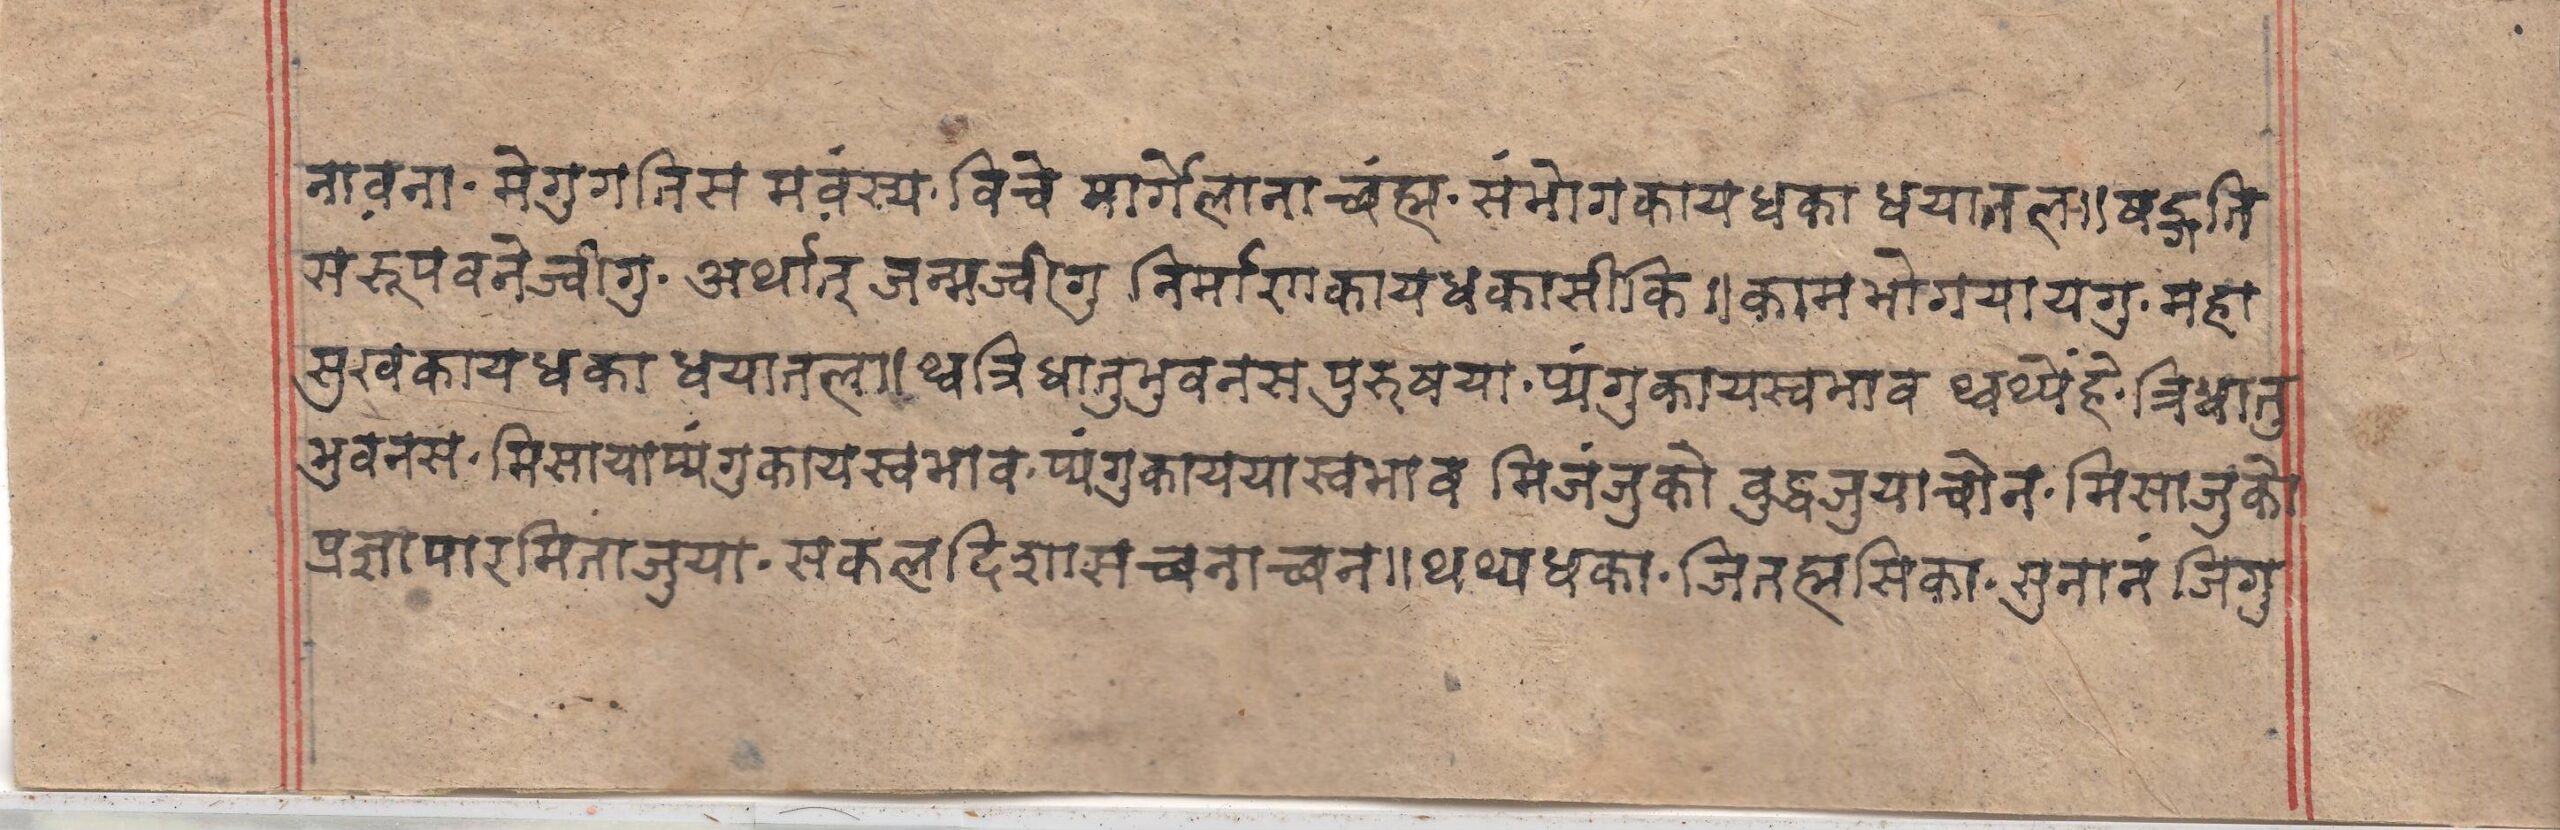 नावना॰ मेगुगतिस मवंस्य॰ विचे मार्गेलानाच्वंह्म॰ संभोगकायधका धयातल॥ षड्गति
सरूपवनेज्वीगु॰ अर्थात् जन्मज्वीगु निर्माणकायधकासीकि॥ कामभोगयायगु॰ महा
सुखकायधका धयातल॥ थ्वत्रिधातुभुवनस पुरुषया॰ प्यंगुकायस्वभाव थ्वथ्येंहे॰ त्रिधातु
भुवनस॰ मिसायाप्यंगुकायस्वभाव॰ प्यंगुकाययास्वभाव मिजंजुको बुद्धजुयाचोन॰ मिसाजुको
प्रज्ञापारमिताजुया॰ सकलदिशासच्वनाच्वन॥ थथ्यधका॰ जितह्मसिका॰ सुनानं जिगु